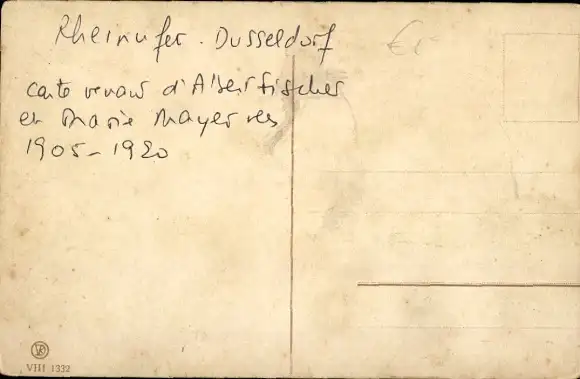 Rheinufer. Dusseldorf
€1
carte venant d'Albert Fischer
et Marie Mayer vers
1905-1920
VHI 1332